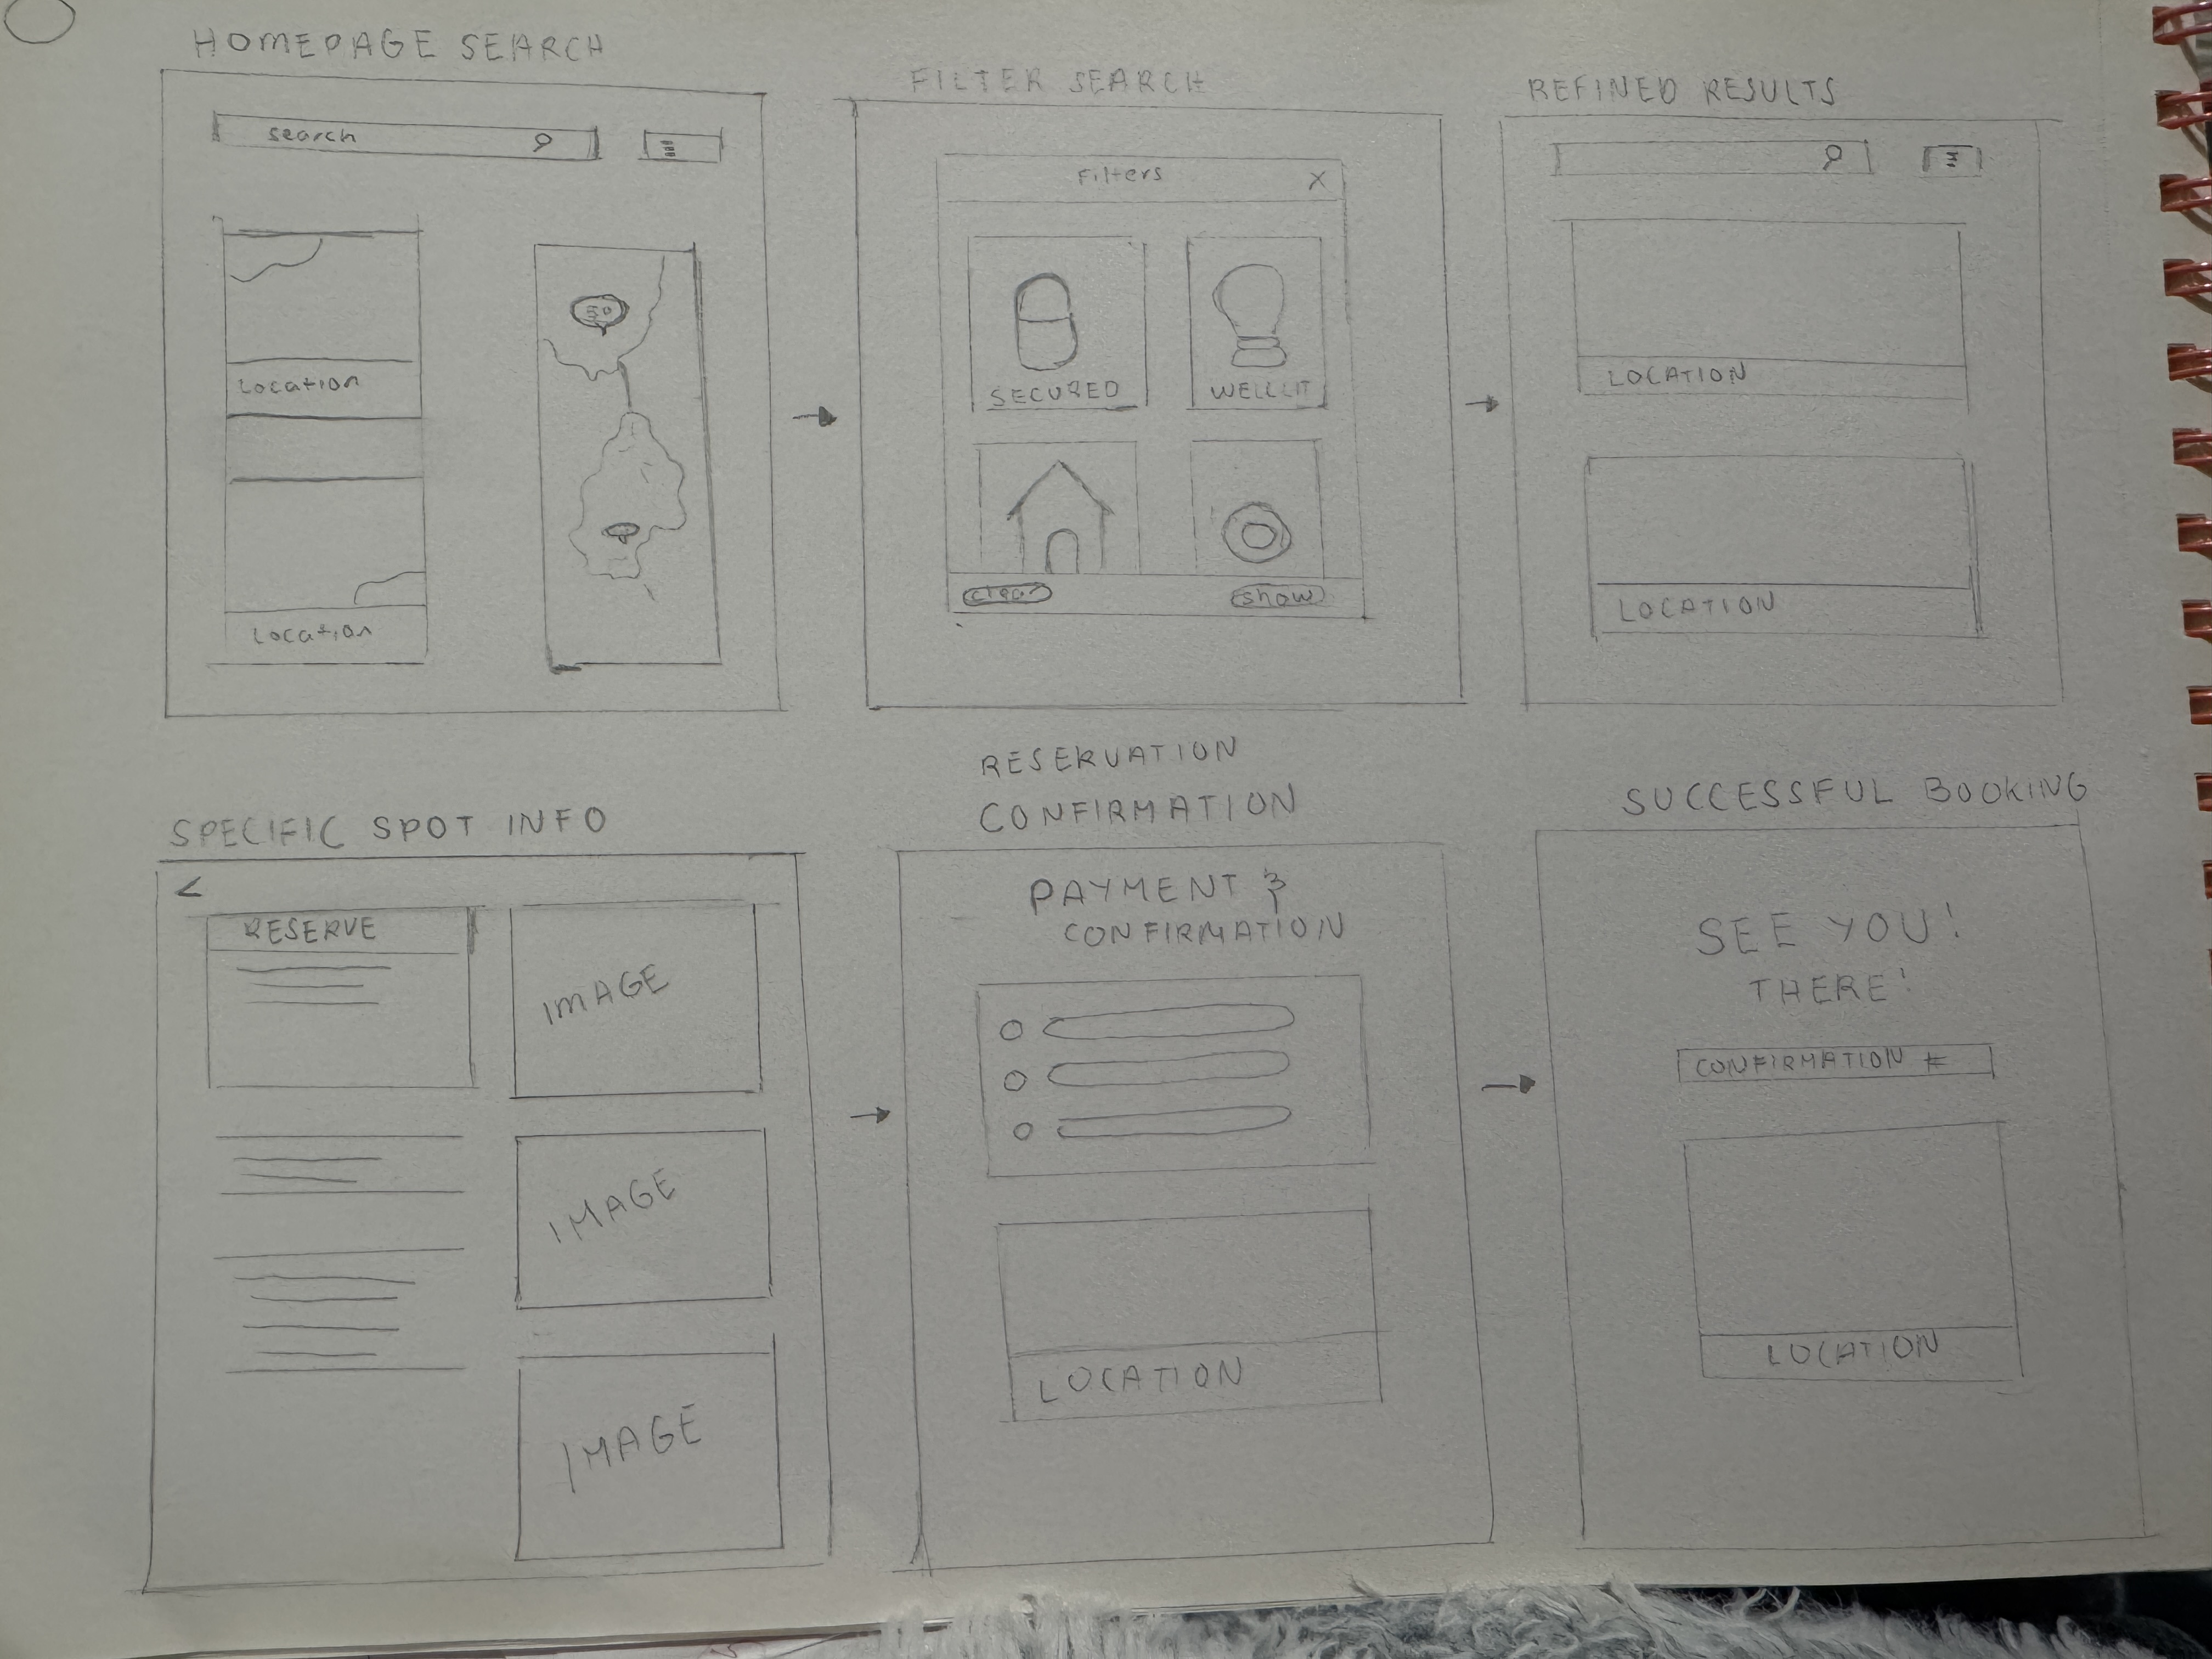 HOMEPAGE SEARCH
search
Location
50
Location
FILTER SEARCH
Filters X
SECURED
WELLLIT
clear
show
REFINED RESULTS
LOCATION
LOCATION
SPECIFIC SPOT INFO
<
RESERVE
IMAGE
IMAGE
IMAGE
RESERVATION
CONFIRMATION
PAYMENT &
CONFIRMATION
LOCATION
SUCCESSFUL BOOKING
SEE YOU!
THERE!
CONFIRMATION #
LOCATION